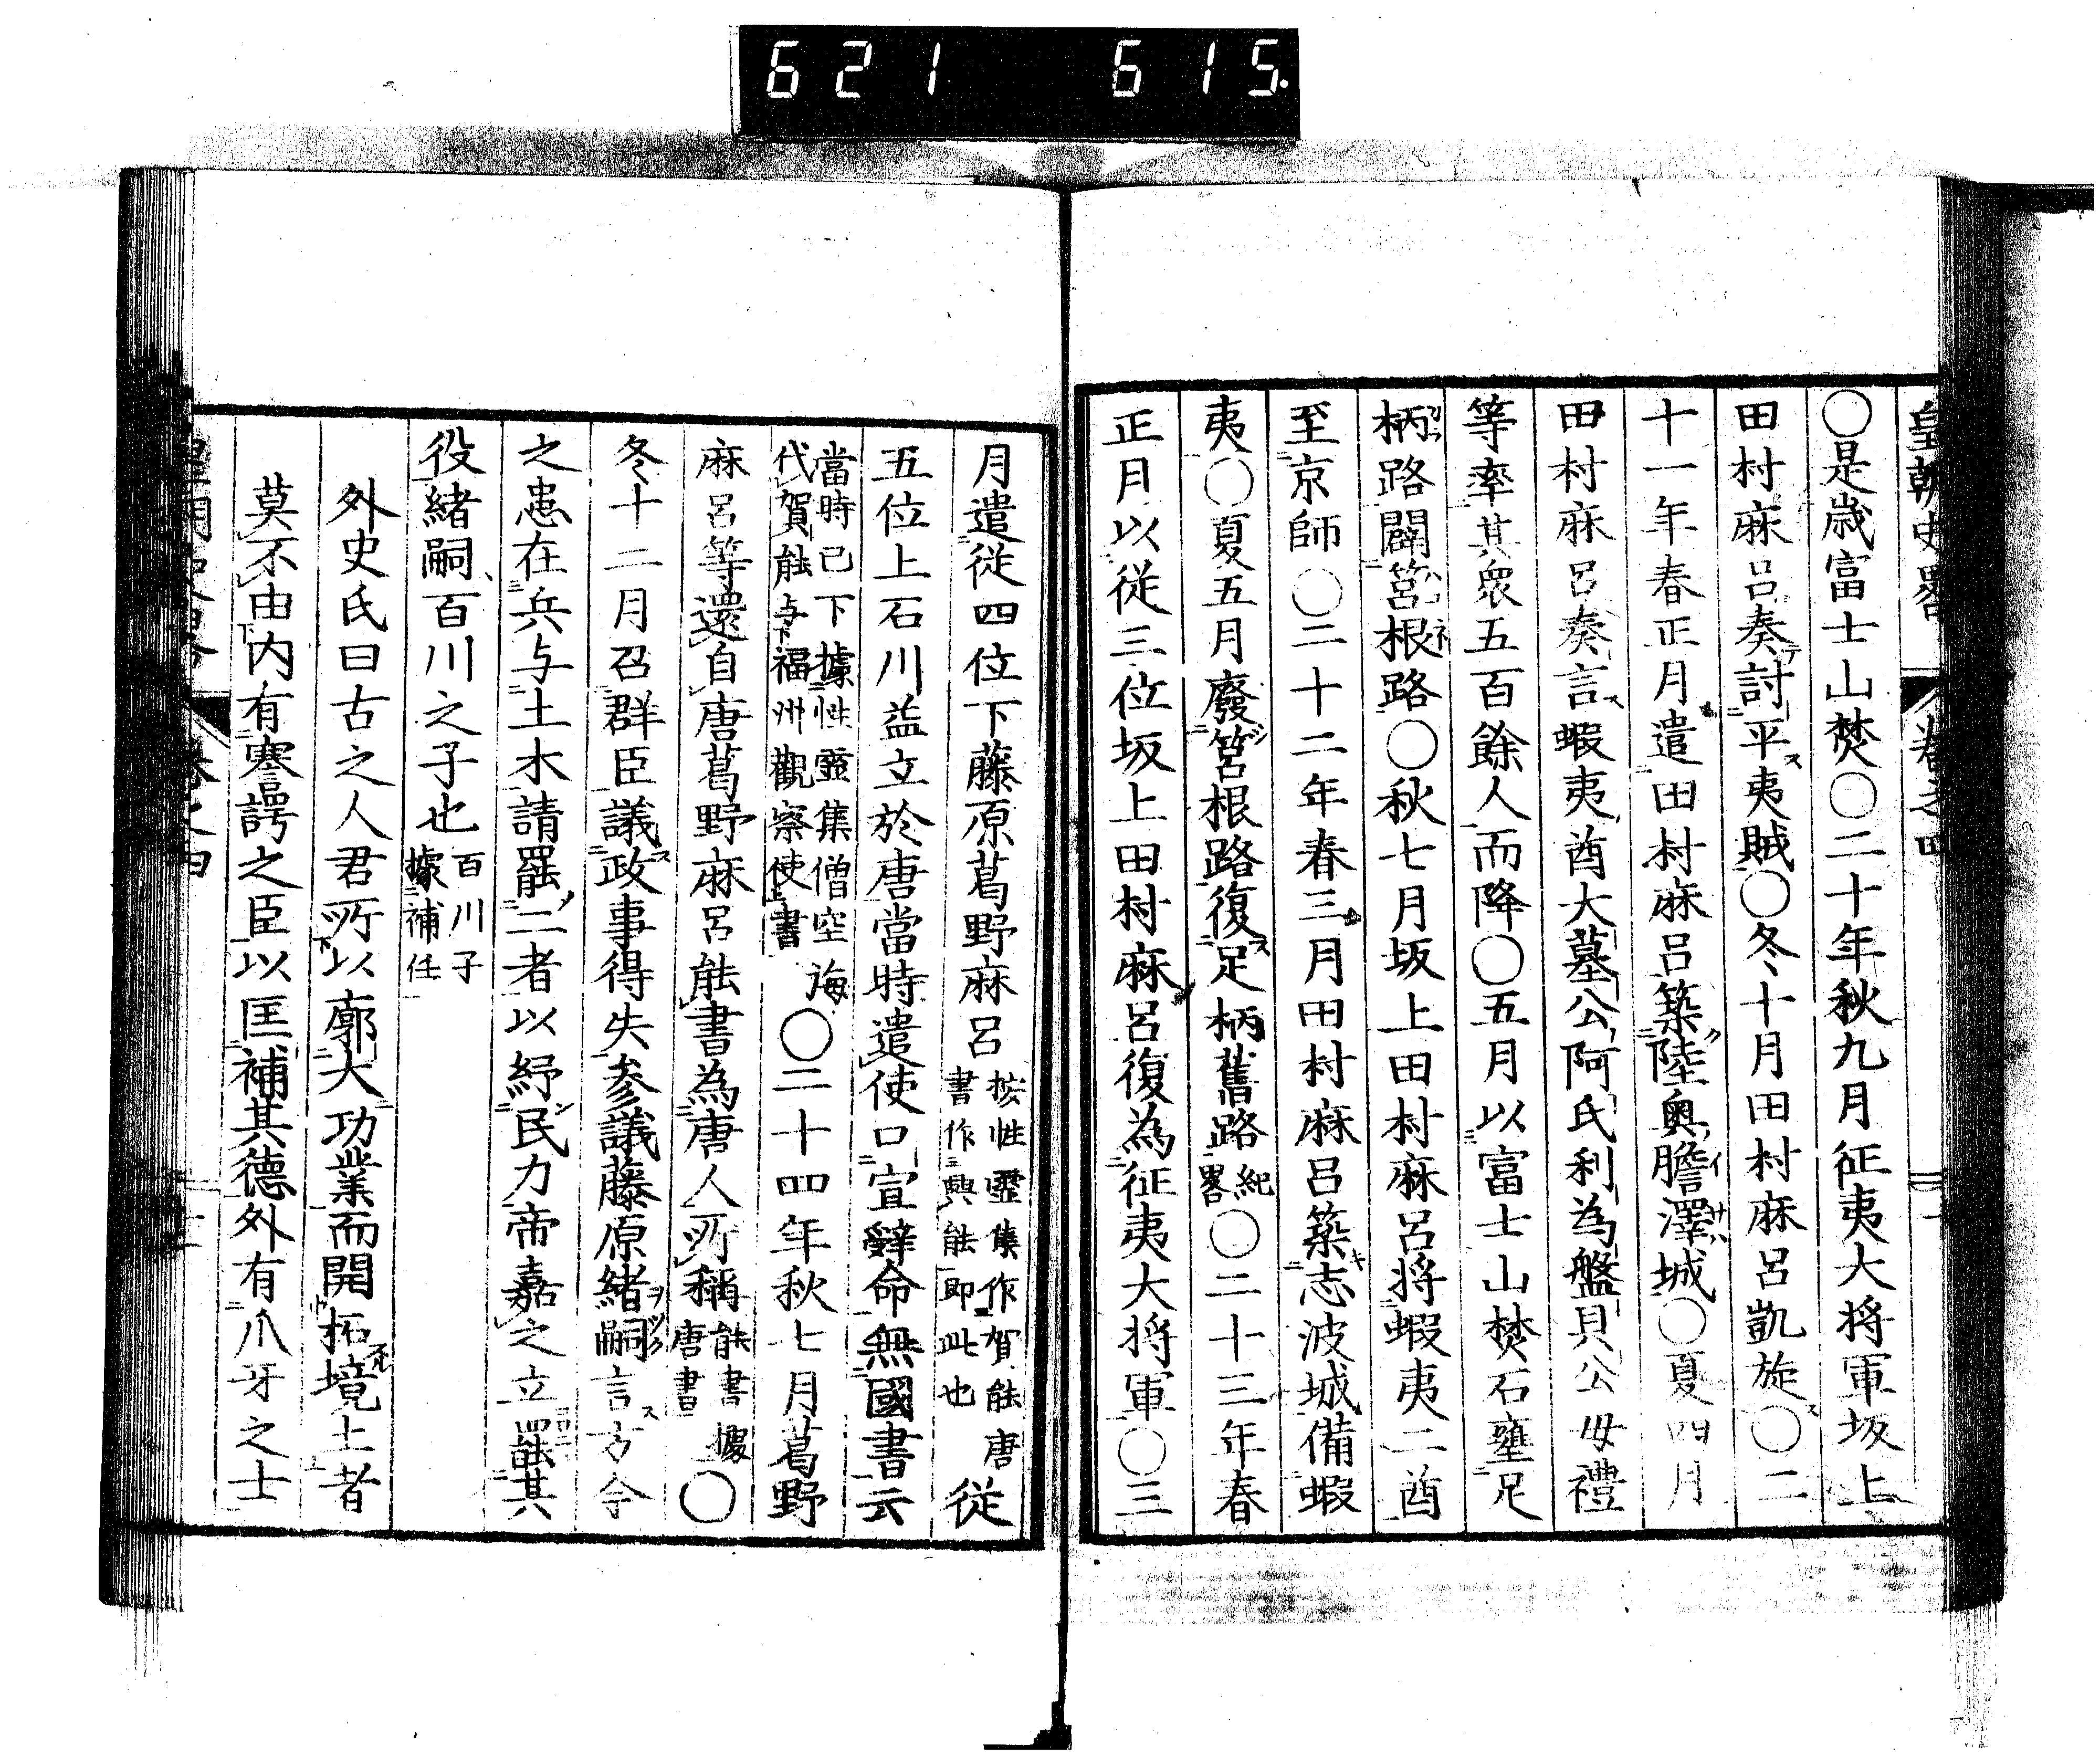 621 615.
皇朝史畧 卷之四
○是歳富士山焚○二十年秋九月征夷大将軍坂上
田村麻呂奏討平夷賊○冬十月田村麻呂凱旋○二
十一年春正月遣田村麻呂築陸奥膽澤城○夏四月
田村麻呂奏言蝦夷酋大墓公阿氏利為盤具公母禮
等率其衆五百餘人而降○五月以富士山焚石壅足
柄路闢筥根路○秋七月坂上田村麻呂将蝦夷二酋
至京師○二十二年春三月田村麻呂築志波城備蝦
夷○夏五月廢筥根路復足柄舊路紀畧○二十三年春
正月以従三位坂上田村麻呂復為征夷大将軍○三
月遣従四位下藤原葛野麻呂按性霊集作賀能唐書作興能即此也従
五位上石川益立於唐當時遣使口宣辭命無國書云
當時已下據性霊集僧空海代賀能与福州觀察使書○二十四年秋七月葛野
麻呂等還自唐葛野麻呂能書為唐人所稱能書據唐書○
冬十二月召群臣議政事得失参議藤原緒嗣言方今
之患在兵与土木請罷二者以紓民力帝嘉之立罷其
役緒嗣百川之子也百川子據補任
外史氏曰古之人君所以廓大功業而開拓境土者
莫不由内有謇諤之臣以匡補其德外有爪牙之士